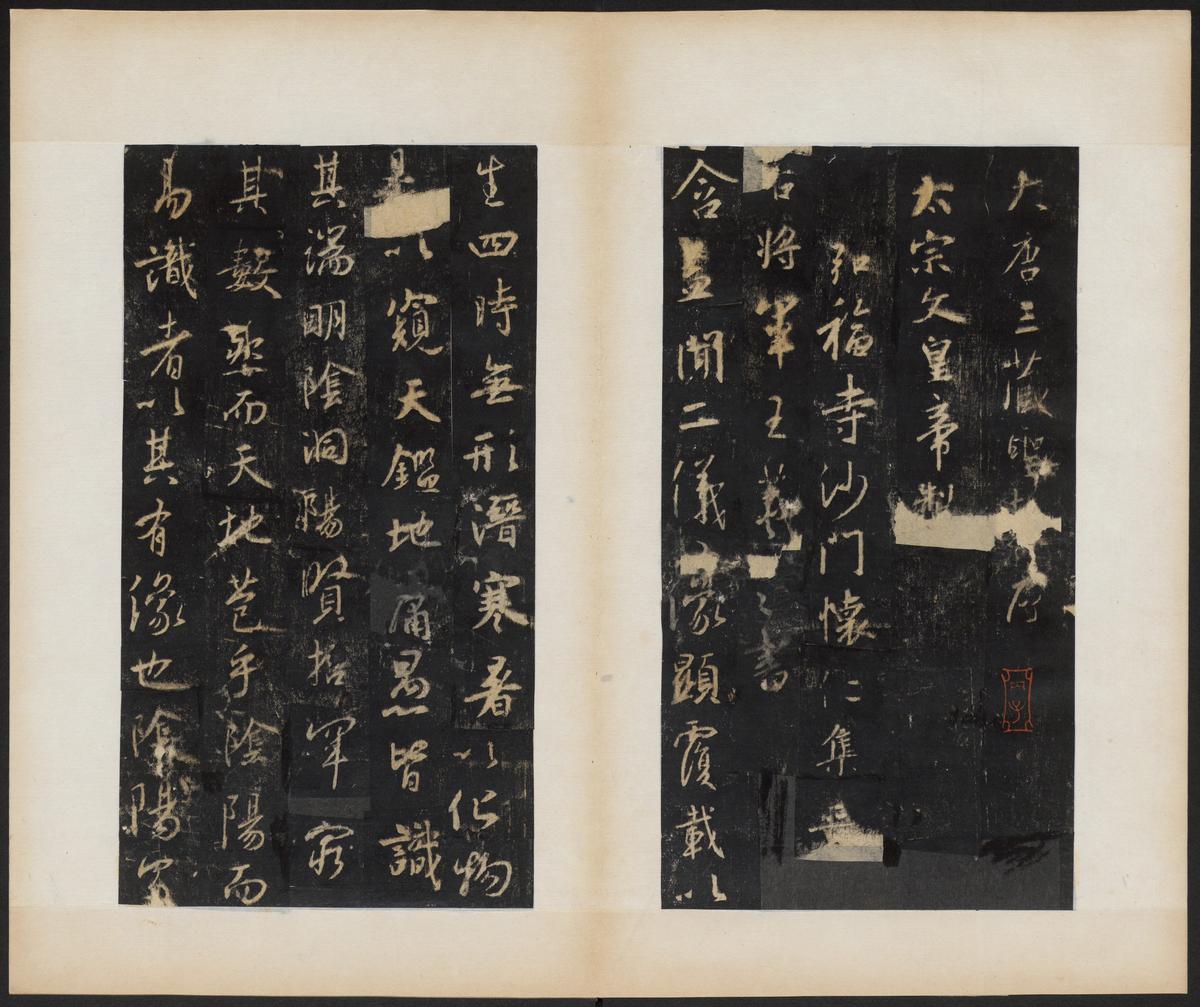 大唐三藏聖教序
太宗文皇帝製
弘福寺沙門懷仁集
右將軍王羲之書
盖聞二儀有像顯覆載以
含
生四時無形潛寒暑以化物
是以窺天鑑地庸愚皆識
其端明陰洞陽賢哲罕窮
其數然而天地苞乎陰陽而
易識者以其有像也陰陽處
丙子